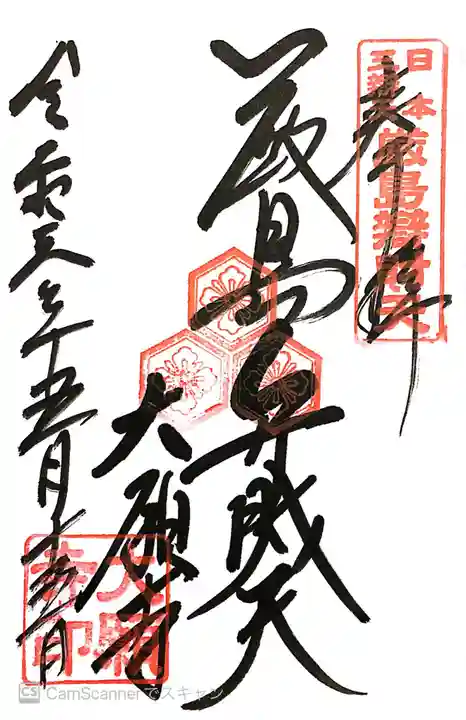 奉拝
日本三辨天
厳島辨財天
厳島弁財天
大願寺
令和元年五月
大願寺印
CS CamScannerでスキャン